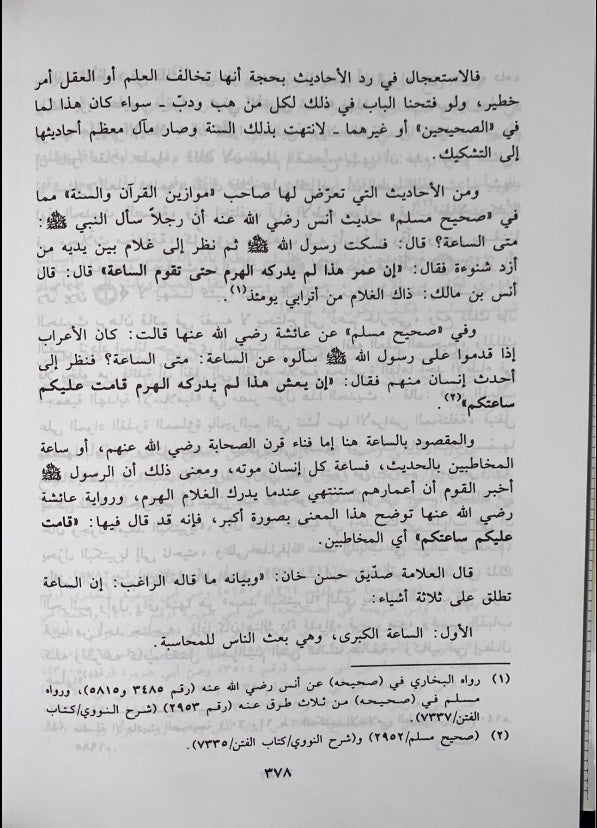 فالاستعجال في رد الأحاديث بحجة أنها تخالف العلم أو العقل أمر
خطير، ولو فتحنا الباب في ذلك لكل من هب ودبّ ـ سواء كان هذا لما
في «الصحيحين» أو غيرهما ـ لانتهت بذلك السنة وصار مآل معظم أحاديثها
إلى التشكيك.
ومن الأحاديث التي تعرّض لها صاحب «موازين القرآن والسنة» مما
في «صحيح مسلم» حديث أنس رضي الله عنه أن رجلاً سأل النبي ﷺ:
متى الساعة؟ قال: فسكت رسول الله ﷺ ثم نظر إلى غلام بين يديه من
أزد شنوءة فقال: «إن عمر هذا لم يدركه الهرم حتى تقوم الساعة» قال: قال
أنس بن مالك: ذاك الغلام من أترابي يومئذ(١).
وفي «صحيح مسلم» عن عائشة رضي الله عنها قالت: كان الأعراب
إذا قدموا على رسول الله ﷺ سألوه عن الساعة: متى الساعة؟ فنظر إلى
أحدث إنسان منهم فقال: «إن يعش هذا لم يدركه الهرم قامت عليكم
ساعتكم»(٢).
والمقصود بالساعة هنا إما فناء قرن الصحابة رضي الله عنهم، أو ساعة
المخاطبين بالحديث، فساعة كل إنسان موته، ومعنى ذلك أن الرسول ﷺ
أخبر القوم أن أعمارهم ستنتهي عندما يدرك الغلام الهرم، ورواية عائشة
رضي الله عنها توضح هذا المعنى بصورة أكبر، فإنه قد قال فيها: «قامت
عليكم ساعتكم» أي المخاطبين.
قال العلامة صدّيق حسن خان: «وبيانه ما قاله الراغب: إن الساعة
تطلق على ثلاثة أشياء:
الأول: الساعة الكبرى، وهي بعث الناس للمحاسبة.
(١) رواه البخاري في (صحيحه) عن أنس رضي الله عنه (رقم ٣٤٨٥ و٥٨١٥)، ورواه
مسلم في (صحيحه) من ثلاث طرق عنه (رقم ٢٩٥٣) (شرح النووي/كتاب
الفتن/٧٣٣٧).
(٢) (صحيح مسلم/٢٩٥٢) و(شرح النووي/كتاب الفتن/٧٣٣٥).
٣٧٨